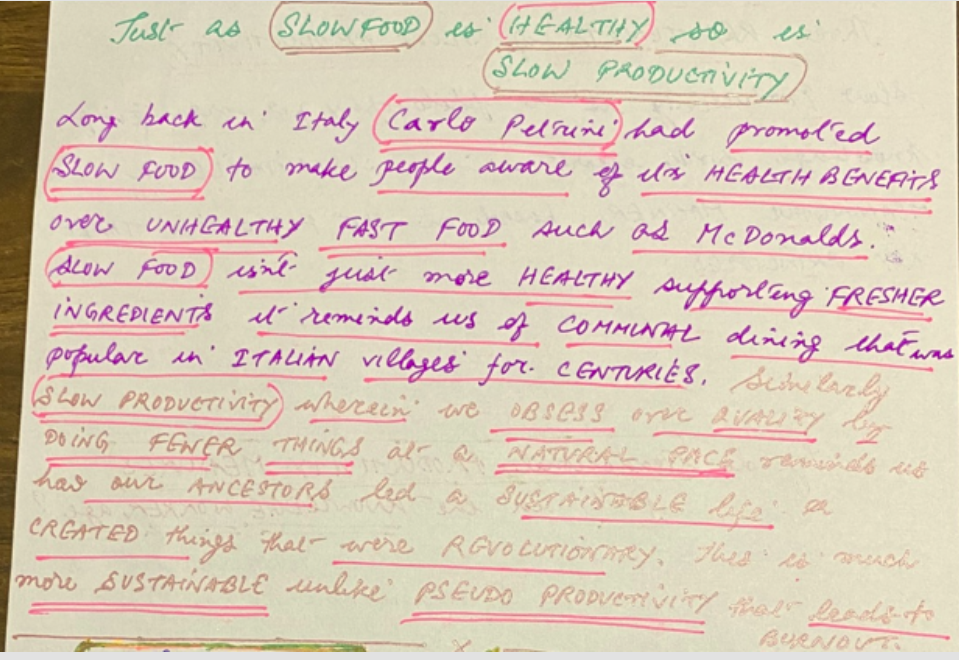 Just as SLOW FOOD is HEALTHY so is
SLOW PRODUCTIVITY
Long back in Italy Carlo Petrini had promoted
SLOW FOOD to make people aware of its HEALTH BENEFITS
over UNHEALTHY FAST FOOD such as McDonalds.
SLOW FOOD isn't just more HEALTHY supporting FRESHER
INGREDIENTS it reminds us of COMMUNAL dining that was
popular in ITALIAN villages for CENTURIES. Similarly
SLOW PRODUCTIVITY wherein we OBSESS over QUALITY by
DOING FEWER THINGS at a NATURAL PACE reminds us
how our ANCESTORS led a SUSTAINABLE life &
CREATED things that were REVOLUTIONARY. This is much
more SUSTAINABLE unlike PSEUDO PRODUCTIVITY that leads to
BURNOUT.